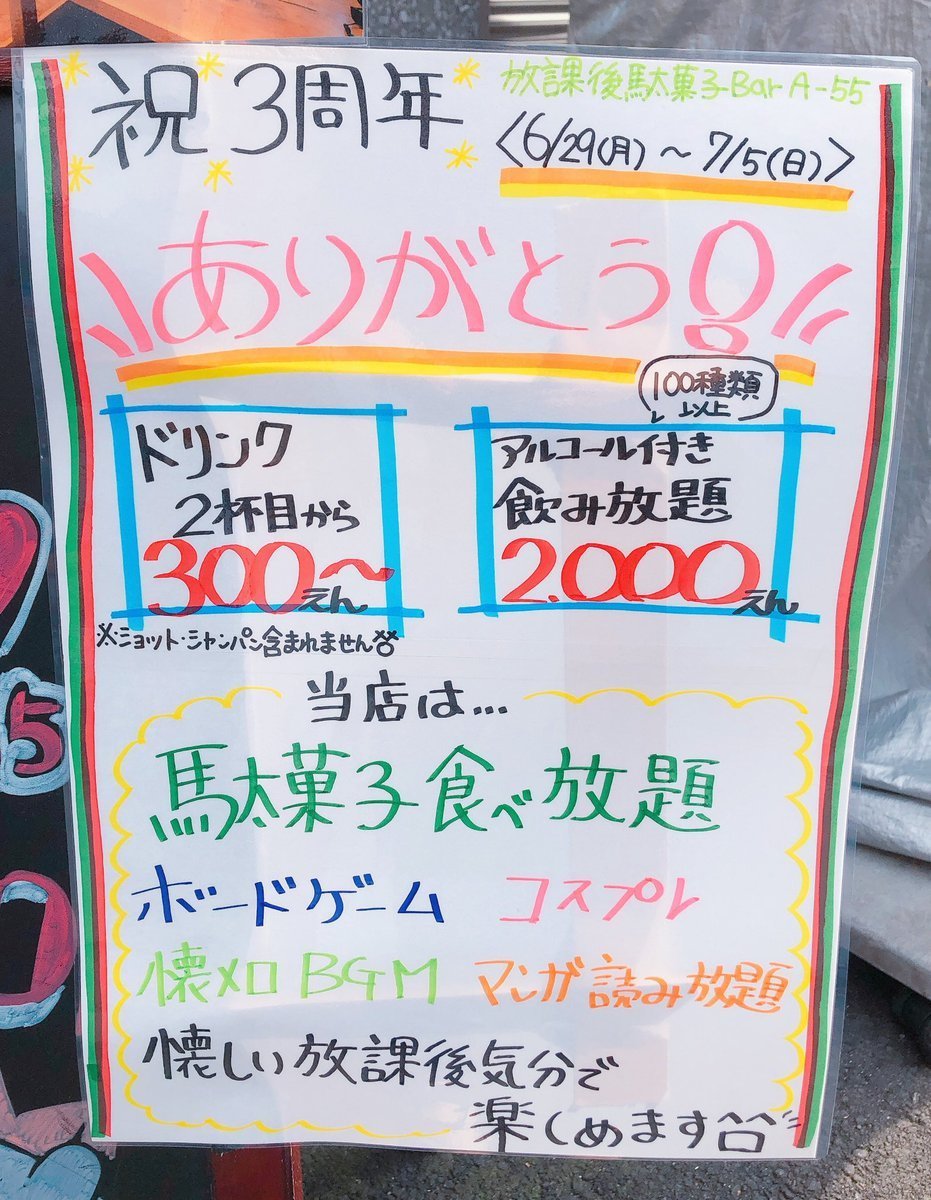 祝3周年
放課後駄菓子Bar A-55
<6/29(月)～7/5(日)>
ありがとう!
ドリンク
2杯目から
300～えん
※ショット・シャンパン含まれません
100種類
以上
アルコール付き
飲み放題
2.000えん
当店は...
駄菓子食べ放題
ボードゲーム コスプレ
懐メロBGM マンガ読み放題
懐しい放課後気分で
楽しめます
5